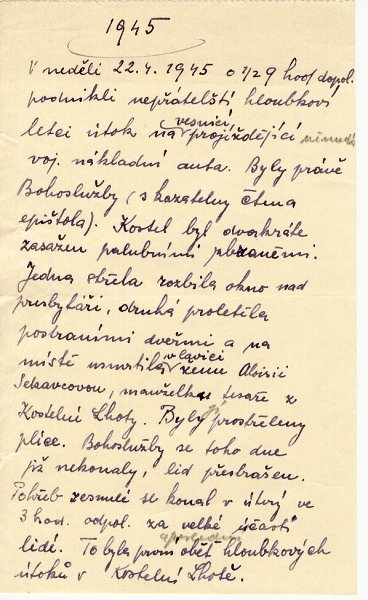 1945
V neděli 22.4. 1945 o 1/29 hod dopol.
podnikli nepřátelští hloubkoví
vesnicí
letci útok na projíždějící německá
voj. nákladní auta. Byly právě
Bohoslužby (s kazatelny čtena
epištola). Kostel byl dvakráte
zasažen palubními zbraněmi.
Jedna střela rozbila okno nad
presbytáří, druhá proletěla
postranními dveřmi a na
v lavici
místě usmrtila ženu Aloisii
Sekavcovou, manželku tesaře z
Kostelní Lhoty. Byly jí prostřeleny
plíce. Bohoslužby se toho dne
již nekonaly, lid přestrašen.
Pohřeb zesnulé se konal v úterý ve
3 hod. odpol. za velké účasti
lidí. To byla první oběť hloubkových
útoků v Kostelní Lhotě.